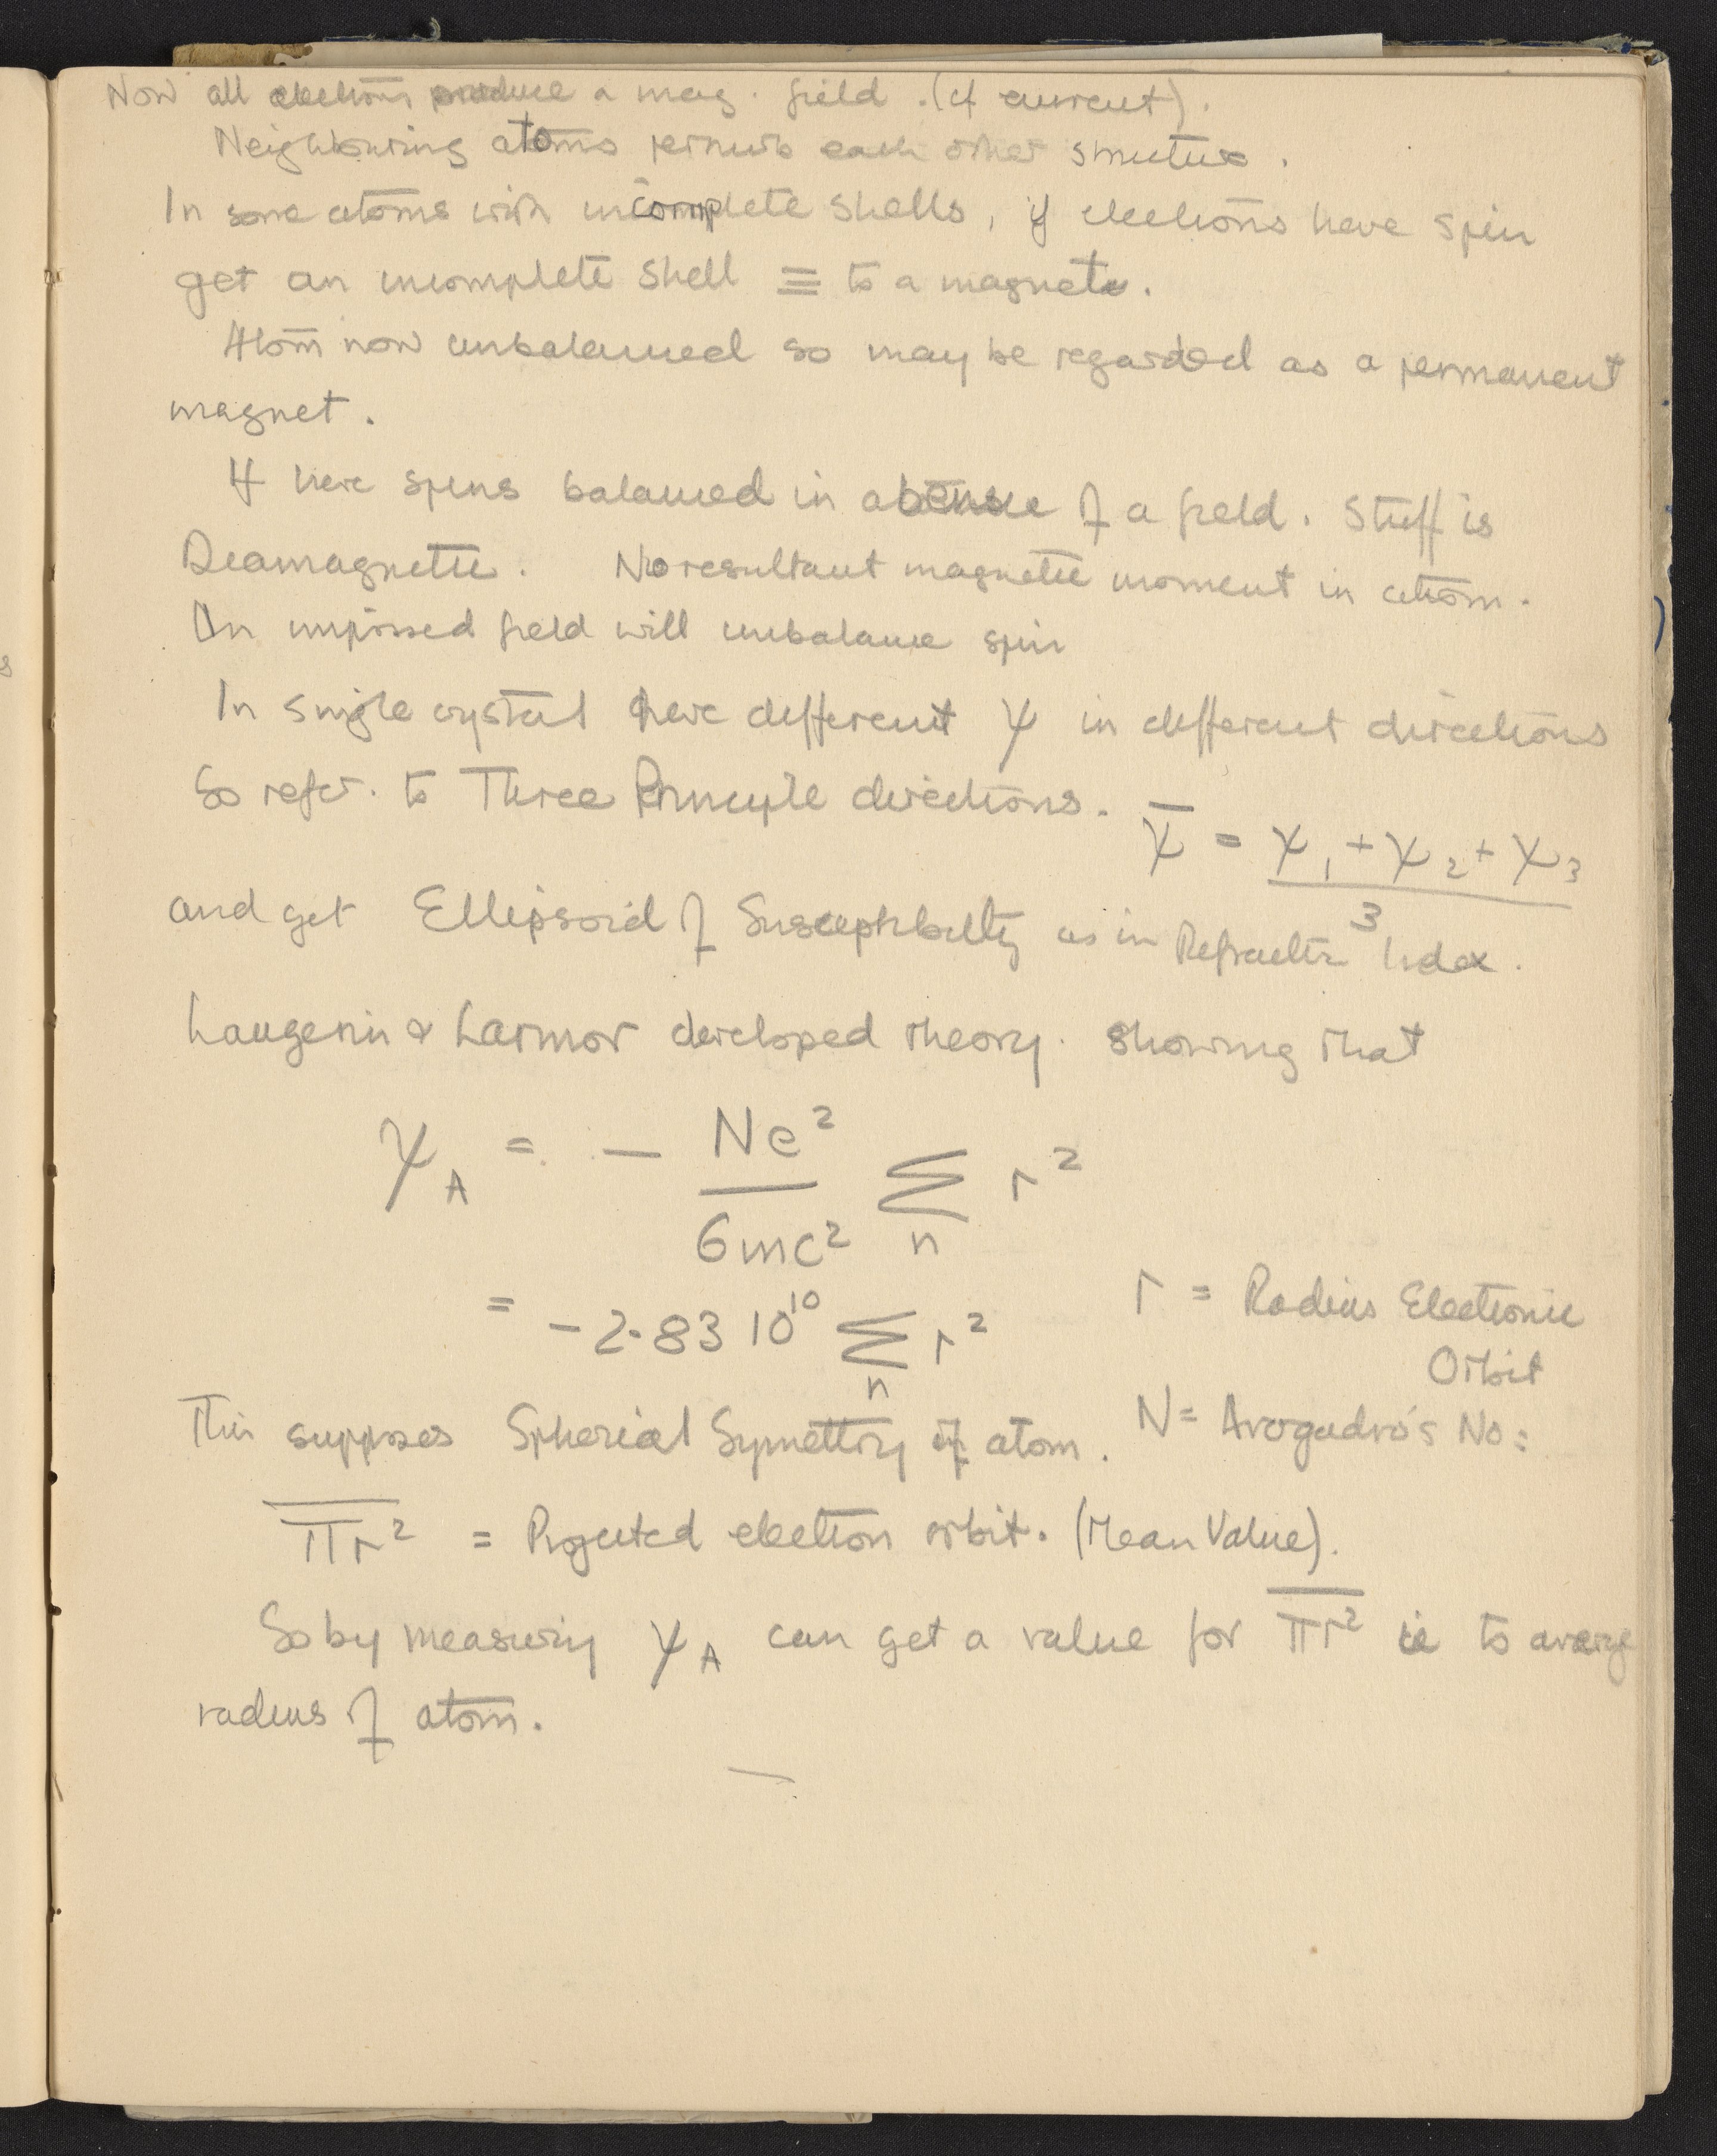 Now all electrons produce a mag. field. (cf current).
Neighbouring atoms perturb each other structure.
In some atoms with incomplete shells, if electrons have spin
get an incomplete shell ≡ to a magnet.
Atom now unbalanced so may be regarded as a permanent
magnet.
If here spins balanced in absense of a field. Stuff is
Diamagnetic. No resultant magnetic moment in atom.
An imposed field will unbalance spin
In single crystal have different χ in different directions
So refer. to Three Principle directions.
χ̄ = χ₁ + χ₂ + χ₃
3
and get Ellipsoid of Susceptibility as in Refractive Index.
Langevin & Larmor developed theory. showing that
χ_A = - Ne²/6mc² Σ_n r²
= -2.83 10¹⁰ Σ_n r²
r = Radius Electronic
Orbit
This supposes Spherical Symettry of atom. N = Avogadro's No:
π̅r̅² = Projected electron orbit. (Mean Value).
So by measuring χ_A can get a value for π̅r̅² ie to average
radius of atom.
s